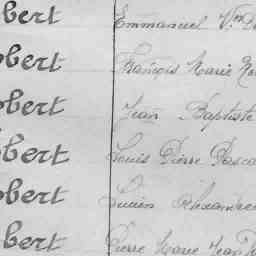 bert Emmanuel Vm
obert François Marie
obert Jean Baptiste
obert Louis Pierre Pasca
obert Lucien Alexandre
bert Pierre Marie Jean